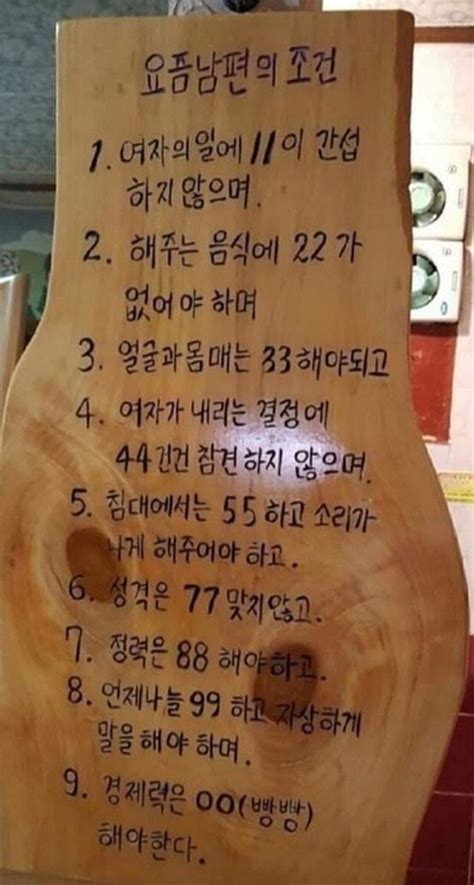 요즘남편의 조건
1. 여자의일에 11이 간섭
하지 않으며.
2. 해주는 음식에 22가
없어야 하며
3. 얼굴과몸매는 33해야되고
4. 여자가 내리는 결정에
44건건 참견하지 않으며.
5. 침대에서는 55하고 소리가
나게 해주어야 하고.
6. 성격은 77맞지않고.
7. 정력은 88해야하고.
8. 언제나늘 99하고 자상하게
말을해야 하며.
9. 경제력은 00(빵빵)
해야한다.